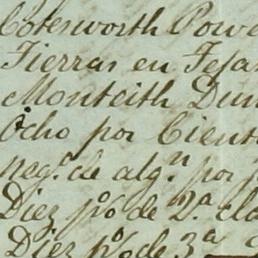 Cotesworth Powe
Tierras en Teja
Monteith Dun
Ocho por Cient
neg.º de alg.n por
Diez p% de 2.a cla
Diez p% de 3.a